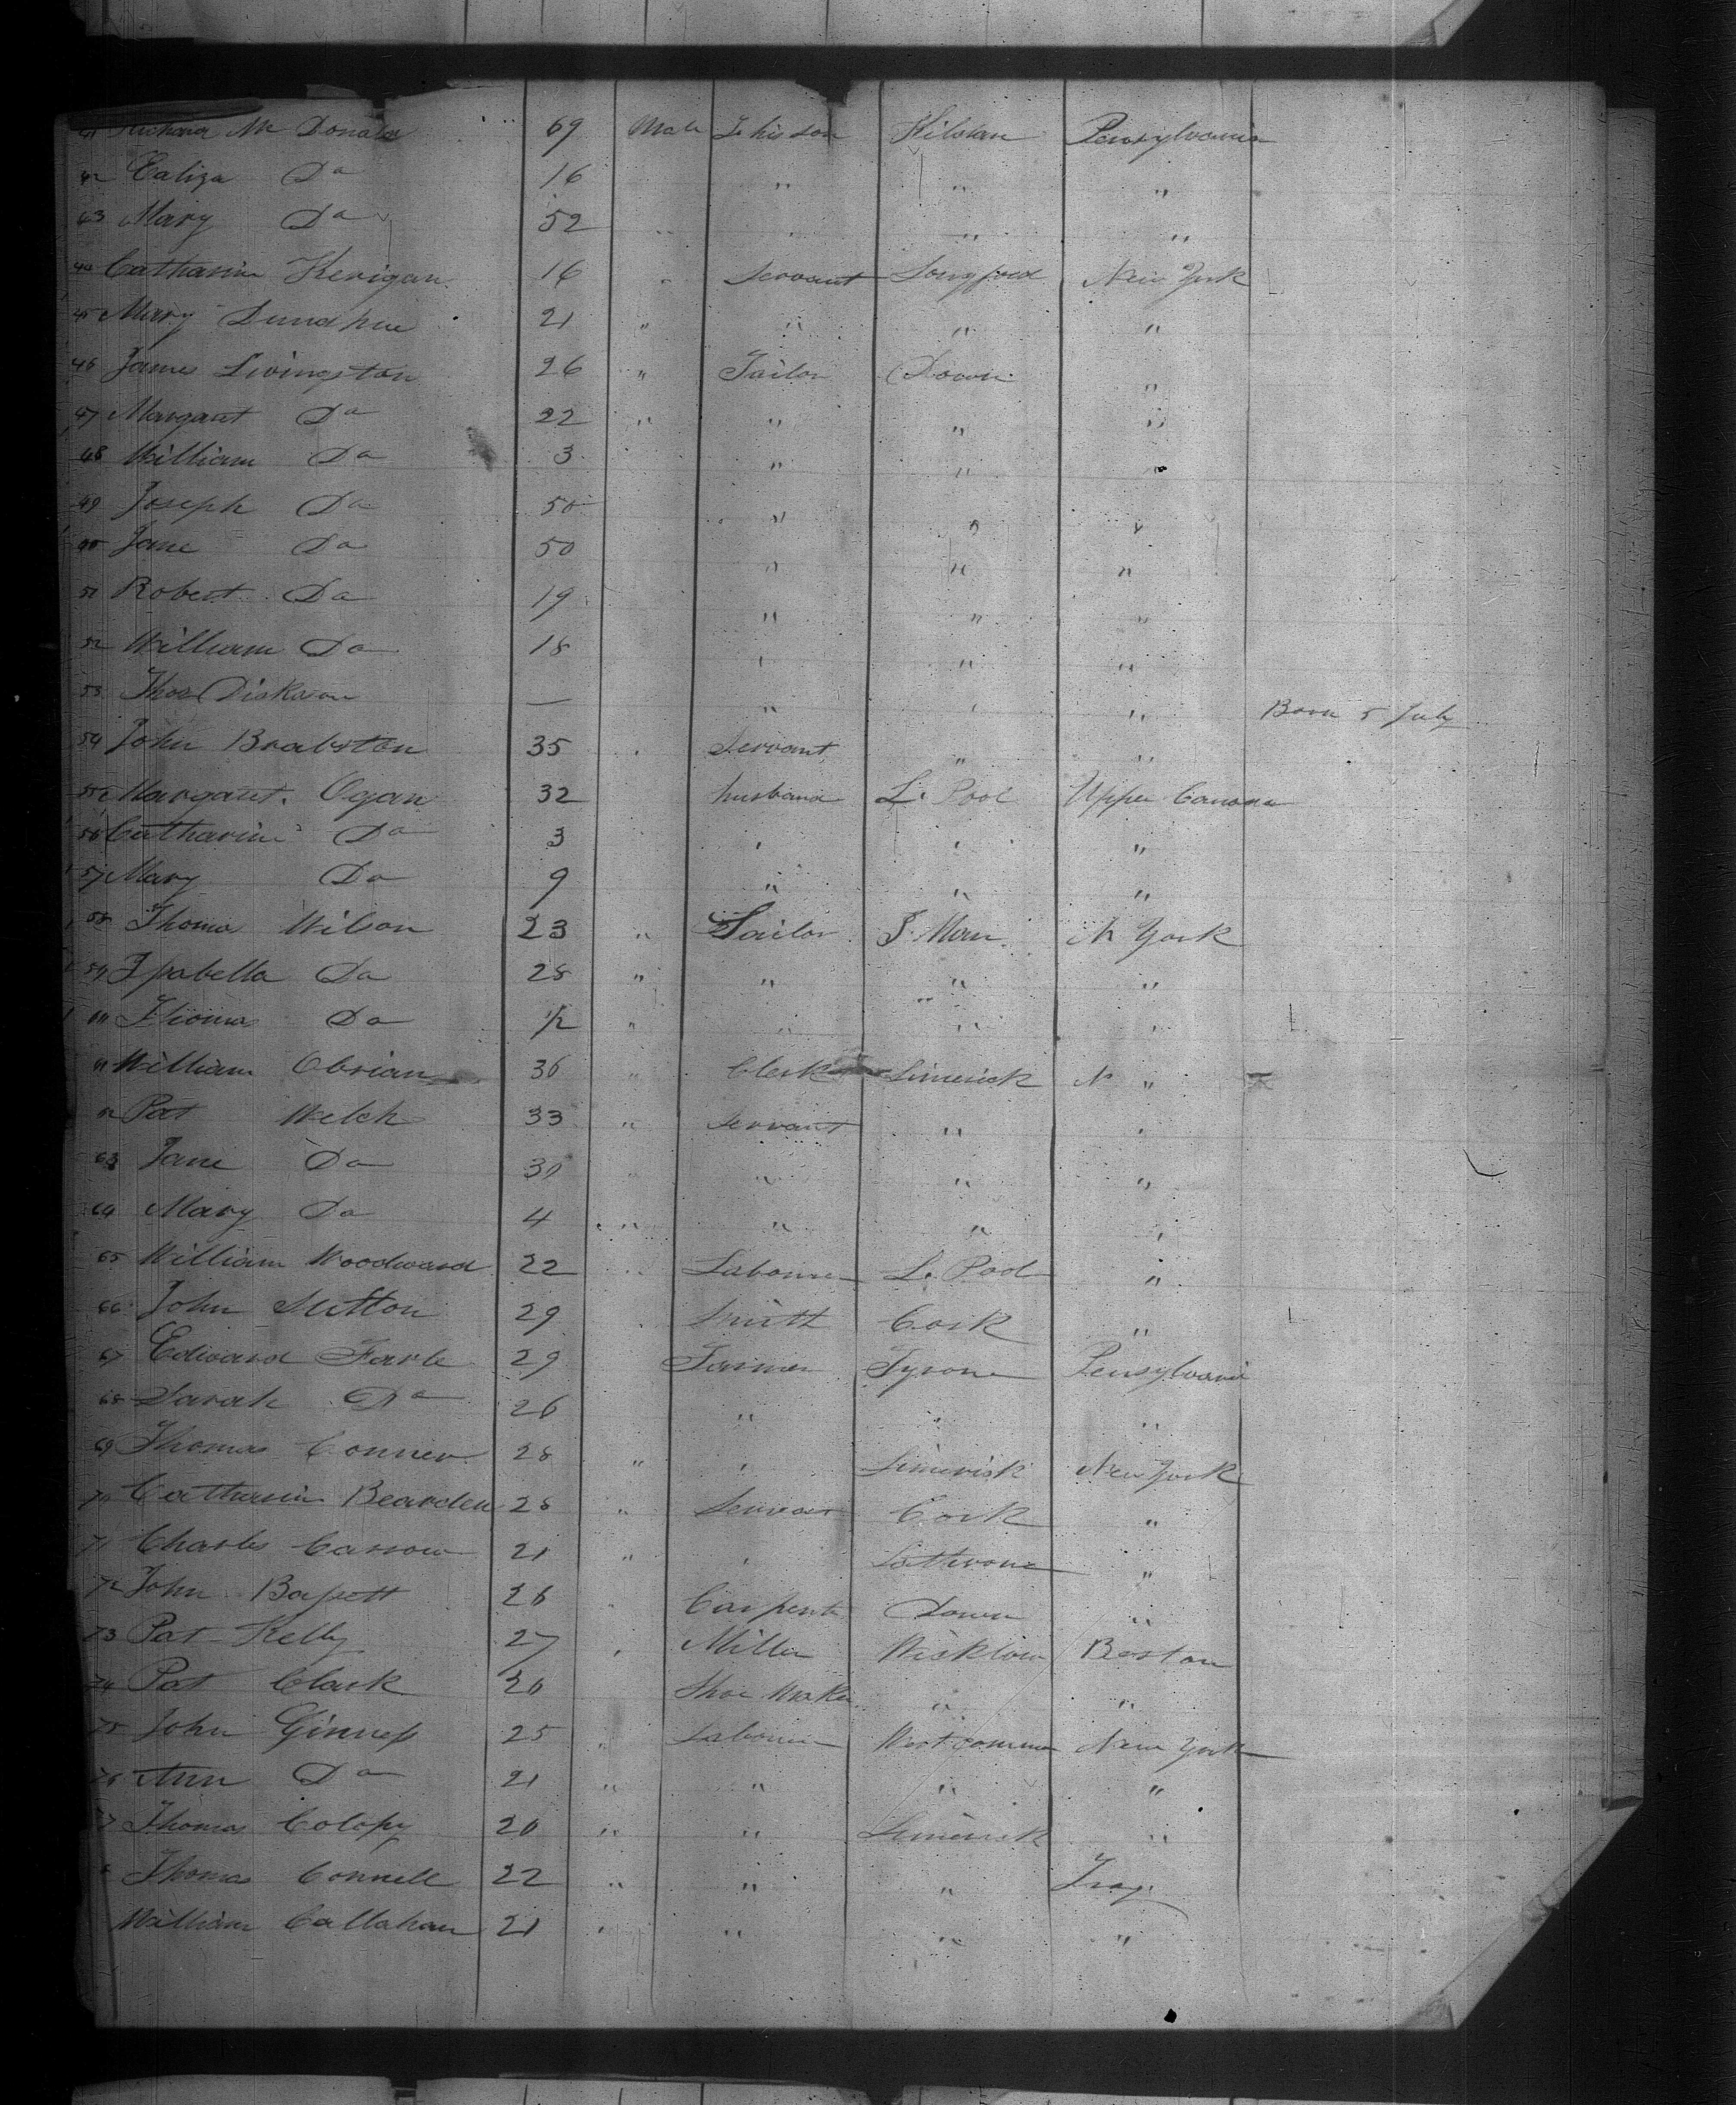 41 Richard Mc Donald 69 Male To his son Kildare Pensylvania
42 Caliza Da 16 " " "
43 Mary Da 52 " " " "
44 Catharin Kerigan 16 " Servant Longford New York
45 Mary Dunahue 21 " " " "
46 James Livingston 26 " Tailor Down "
47 Margaret Da 22 " " " "
48 William Da 3 " " "
49 Joseph Da 50 " " "
50 Jane Da 50 " " "
51 Robert Da 19 " " "
52 William Da 18 " " "
53 Thos Dickson — " " " Born 5 July
54 John Brabston 35 " Servant " "
55 Margaret Ogan 32 husband L. Pool Upper Canada
56 Catharin Da 3 " " "
57 Mary Da 9 " " "
58 Thomas Wilson 23 " Tailor I. Man N York
59 Isabella Da 28 " " " "
60 Thomas Da 1/2 " " " "
61 William Obrian 36 " Clerk Limerick N "
62 Pat Welch 33 " Servant " "
63 Jane Da 30 " " "
64 Mary Da 4 " " " "
65 William Woodward 22 " Labourer L. Pool "
66 John Sutton 29 " Smith Cork "
67 Edward Farle 29 Farmer Tyrone Pensylvani
68 Sarah Da 26 " " "
69 Thomas Conner 28 " " Limerick New York
70 Catharin Bearden 28 " Servant Cork "
71 Charles Carrow 21 " " "
72 John Bassett 26 " Carpente Down "
73 Pat Kelly 27 " Miller Wicklow Boston
74 Pat Clark 20 Shoe Maker " "
75 John Ginness 25 " Labourer New York
76 Ann Da 21 " " " "
77 Thomas Colopy 20 " " Limerick "
Thomas Connell 22 " " " Troy
William Callahan 21 " " " "